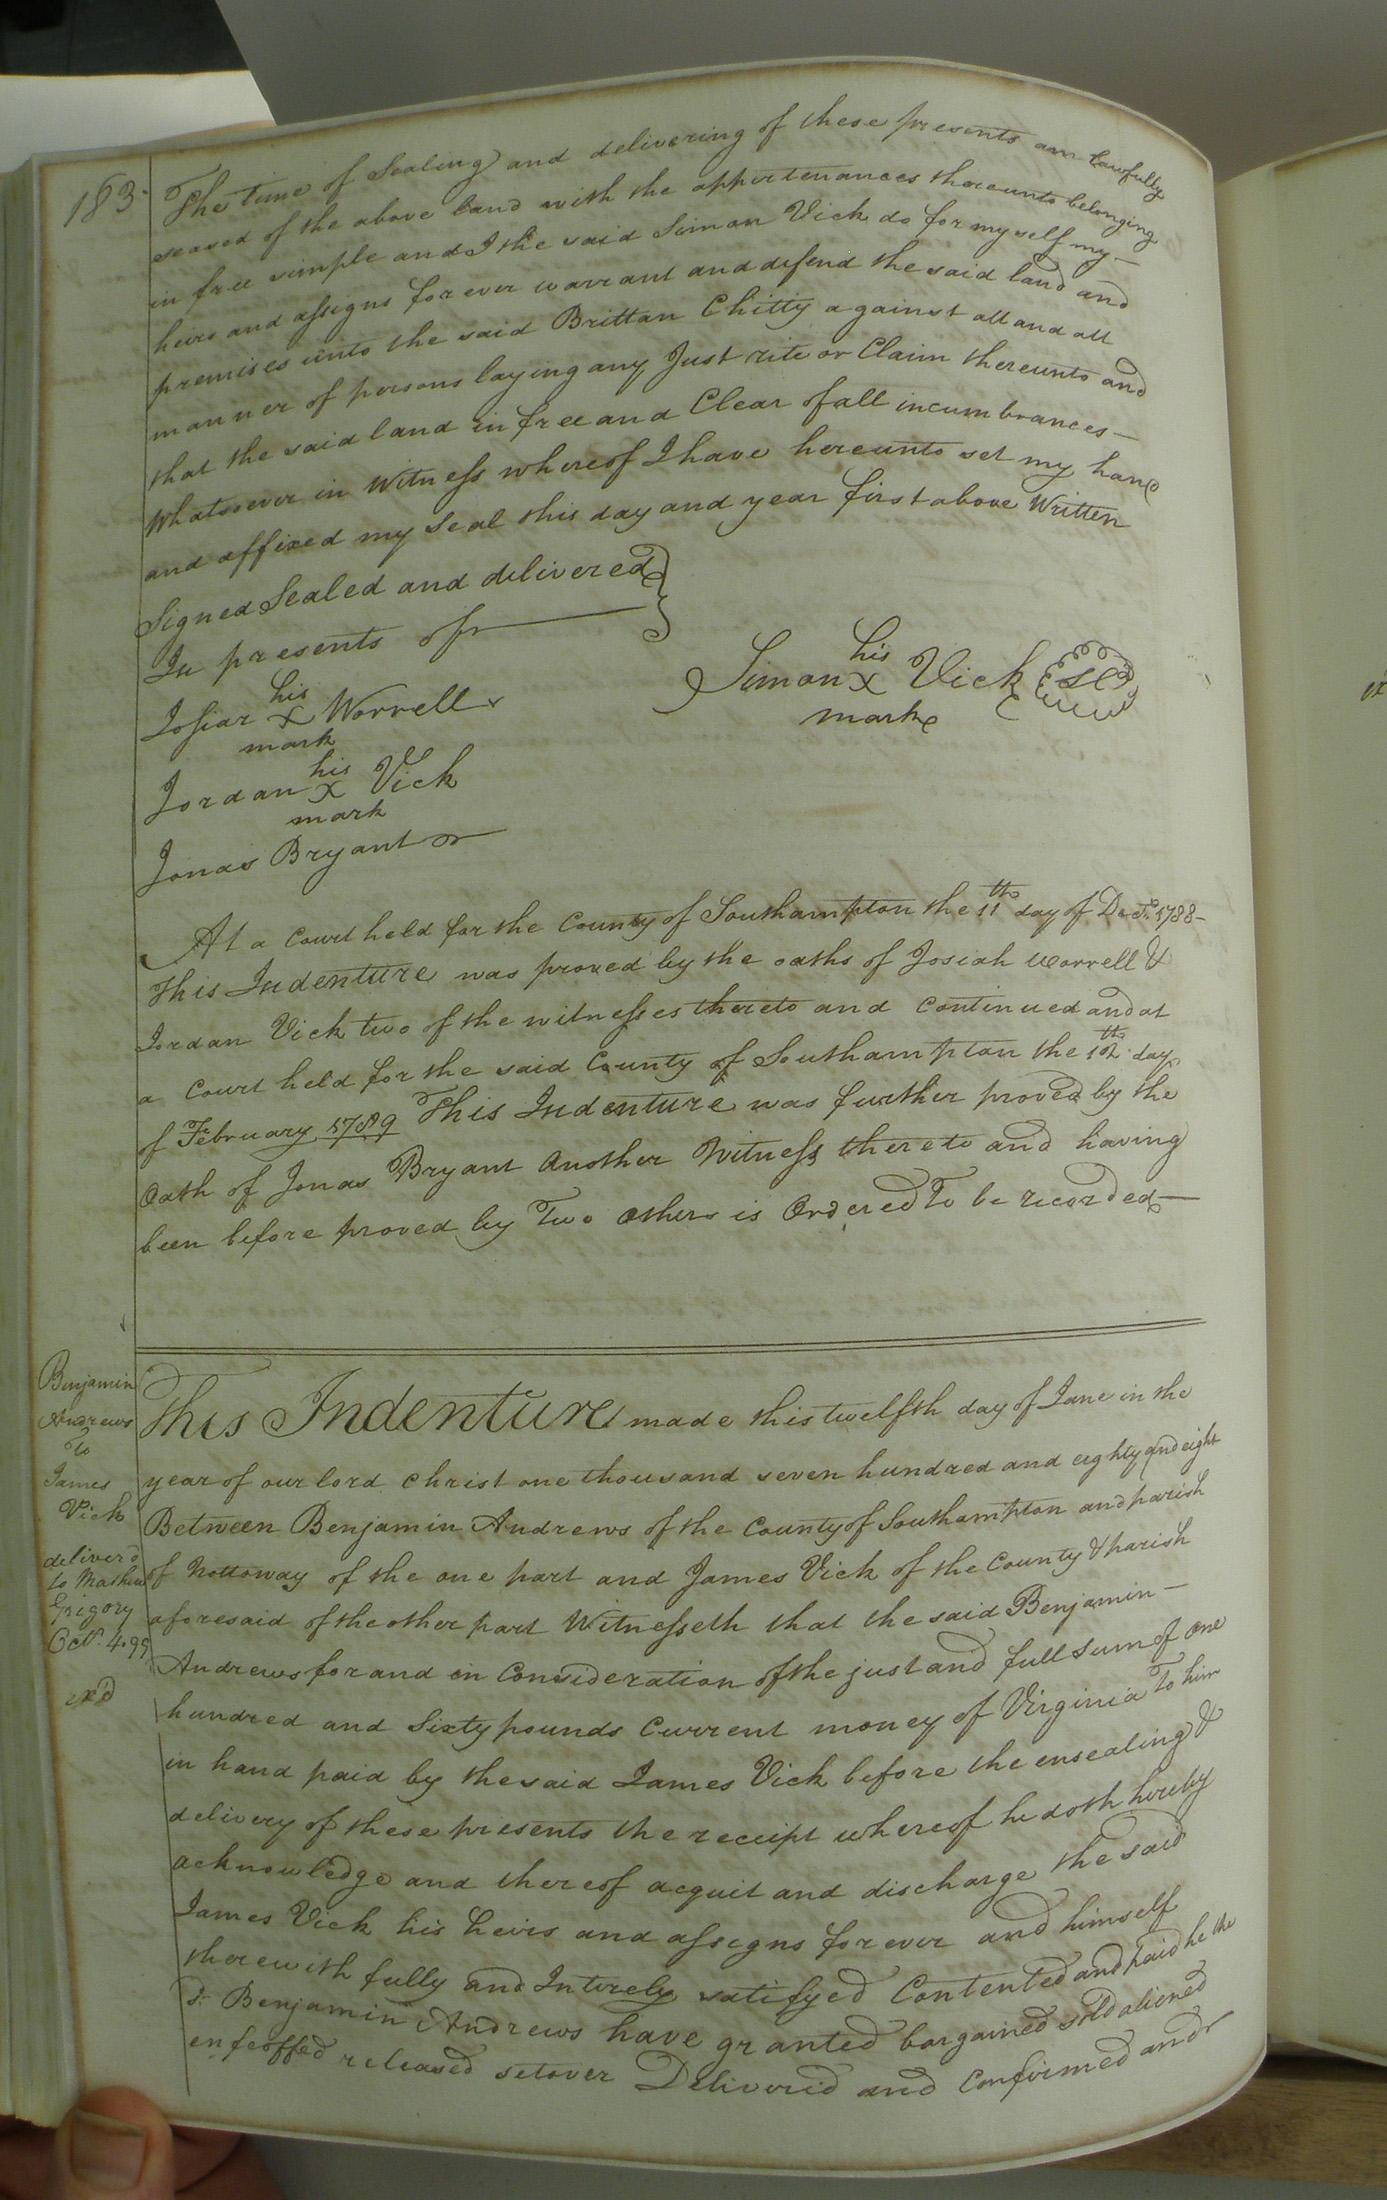 183
The time of Sealing and delivering of these presents am Lawfully
seased of the above land with the appertenances thereunto belonging
in free simple and I the said Simon Vick do for my self my—
heirs and assigns forever warrant and defend the said land and
premises unto the said Brittan Chitty against all and all
manner of persons laying any Just rite or Claim thereunto and
that the said land in free and Clear of all incumbrances—
Whatsoever in Witness whereof I have hereunto set my hand
and affixed my Seal this day and year first above Written
Signed Sealed and delivered
In presents of
Josiar his x mark Worrell
Simon his x mark Vick
Jordan his x mark Vick
Jonas Bryant
At a Court held for the County of Southampton the 11th day of Decr. 1788—
This Indenture was proved by the oaths of Josiah Worrell &
Jordan Vick two of the witnesses thereto and Continued and at
a Court held for the said County of Southampton the 12th day
of February 1789 This Indenture was further proved by the
Oath of Jonas Bryant Another Witness thereto and having
been before proved by Two others is Ordered To be recorded—
Benjamin
Andrews
To
James
Vick
deliver'd
to Mathew
Grigory
Oct. 4. 99
ex'd
This Indenture made this twelfth day of June in the
year of our lord Christ one thousand seven hundred and eighty and eight
Between Benjamin Andrews of the County of Southampton and parish
of Nottoway of the one part and James Vick of the County & parish
aforesaid of the other part Witnesseth that the said Benjamin—
Andrews for and in Consideration of the just and full sum of one
hundred and Sixty pounds Current money of Virginia To him
in hand paid by the said James Vick before the ensealing &
delivery of these presents the receipt whereof he doth hereby
acknowledge and thereof acquit and discharge the said
James Vick his heirs and assigns forever and himself
therewith fully and Intirely satisfyed Contented and paid he the
sd. Benjamin Andrews have granted bargained sold aliened
enfeoffed released setover Deliverid and Confirmed and